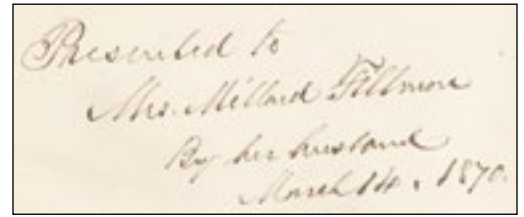 Presented to
Mrs. Millard Fillmore
By her husband
March 14, 1870.